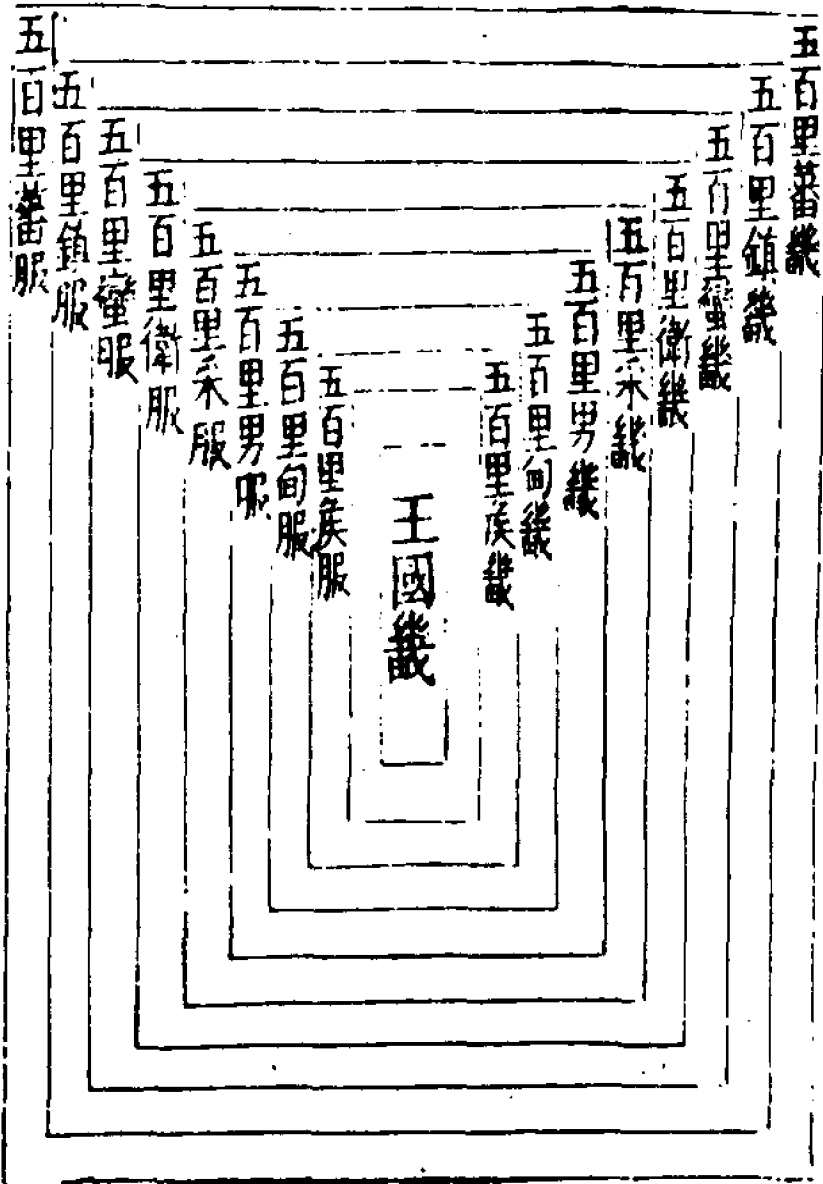 五百里蕃畿
五百里鎮畿
五百里蠻畿
五百里衛畿
五百里采畿
五百里男畿
五百里甸畿
五百里侯畿
王國畿
五百里侯服
五百里甸服
五百里男服
五百里采服
五百里衛服
五百里蠻服
五百里鎮服
五百里蕃服